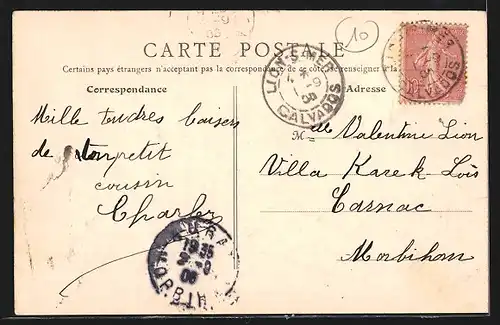 10
CARTE POSTALE
Certains pays étrangers n'acceptant pas la correspondance de ce côté, se renseigner à la
Correspondance
Adresse
LION-S-MER
CALVADOS
Mille tendres baisers
de ton petit
cousin
Charles
Mlle Valentine Lion
Villa Karek-Loïs
Carnac
Morbihan
19 35